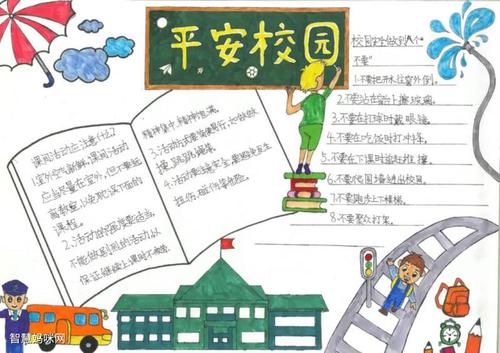 平安校园
课间活动应注意什么?
1.室外空气新鲜,课间活动
应当尽量在室外,但不要远
离教室,以免耽误下面的
课程。
2.活动的强度要适当,
不能做剧烈的活动,以
保证继续上课时不疲倦、
精神集中、精神饱满。
3.活动方式要简便易行,如做做
操、跳跳绳。
4.活动要注意安全,要避免发生
扭伤、碰伤等危险。
校园安全做到八个“
不要”
1.不要把开水往窗外倒。
2.不要站在窗台擦玻璃。
3.不要在打球时戴眼镜。
4.不要在吃饭时打冲锋。
5.不要在下课时追赶推撞。
6.不要爬围墙进出校园。
7.不要跑步上下楼梯。
8.不要聚众打架。
智慧妈咪网